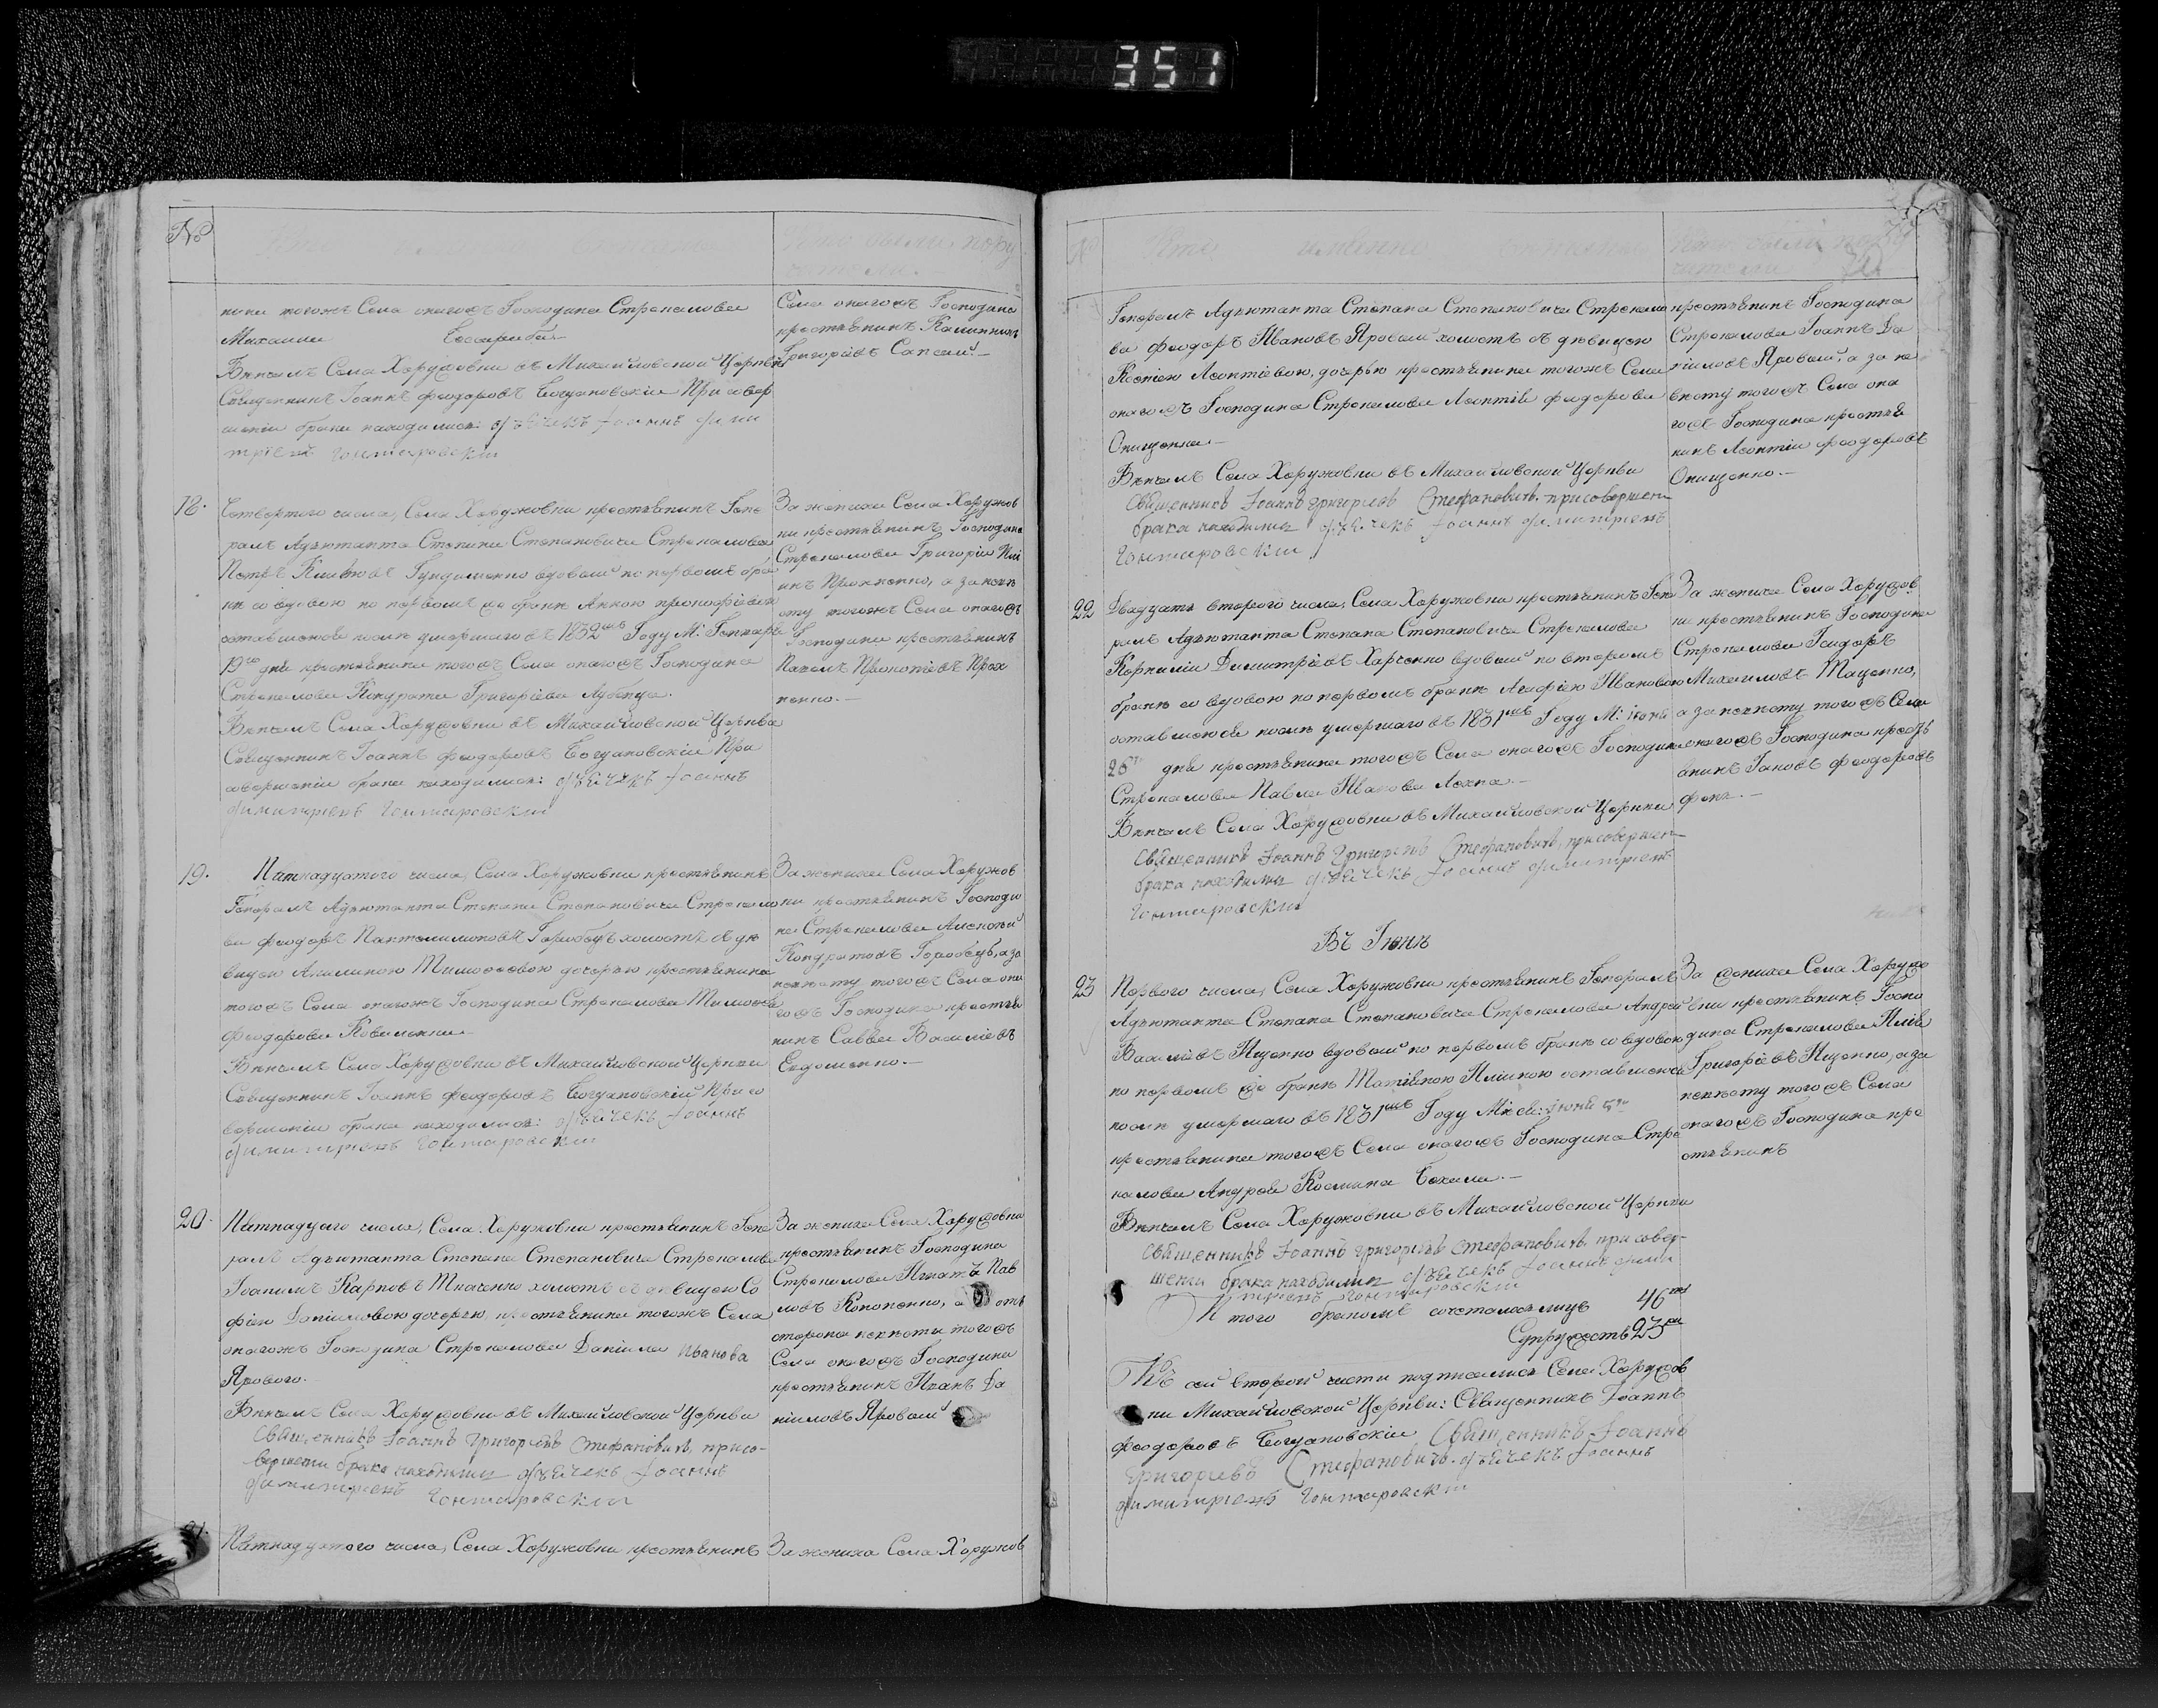 351
№
Кто были пору
чители.
нина тогожъ Села оногожъ Господина Стрекалова
Михаила
Венчалъ Села Хоружовки въ Михайловской Церкви
Священникъ Іоаннъ Феодоровъ Богдановскій При совер
шеніи брака находились: дьячекъ Іоаннъ Дими
тріевъ Гонтаровскій
Села оногожъ Господина
крестьянинъ Калинникъ
Григоріевъ Сапсай.
18.
Четвертого числа, Села Хоружовки крестьянинъ Гене
ралъ Адъютанта Степана Степановича Стрекалова
Петръ вдовый по первомъ бра
ке со вдовою по первомъ же браке Анною Прокофіевою
оставшеюся после умершаго въ 1832мъ Году М: Генваря
19го дня крестьянина тогожъ Села оногожъ Господина
Стрекалова Кондрата Григоріева
Венчалъ Села Хоружовки въ Михайловской Церкве
Священникъ Іоаннъ Феодоровъ Богдановскій При
совершеніи брака находились: дьячекъ Іоаннъ
Димитріевъ Гонтаровскій
За жениха Села Хоружов
ки крестьянинъ Господина
Стрекалова Григорій
а за неве
сту тогожъ Села оногожъ
Господина крестьянинъ
Павелъ Прокопіевъ Прох
ненко.
19.
Пятнадцатого числа, Села Хоружовки крестьянинъ
Генералъ Адъютанта Степана Степановича Стрекало
ва Феодоръ Пантелимоновъ Горобецъ холостъ съ де
вицею Акилиною Тимофеевою дочерью крестьянина
тогожъ Села оногожъ Господина Стрекалова Тимофея
Феодорова
Венчалъ Села Хоружовки въ Михайловской Церкви
Священникъ Іоаннъ Феодоровъ Богдановскій При со
вершеніи брака находились: дьячекъ Іоаннъ
Димитріевъ Гонтаровскій
За жениха Села Хоружов
ки крестьянинъ Господи
на Стрекалова Алексей
Кондратовъ Горобецъ, а за
невесту тогожъ Села оно
гожъ Господина крестья
нинъ Савва Василіевъ
Евдоменко.
20.
Пятнадцаго числа, Села Хоружовки крестьянинъ Гене
ралъ Адъютанта Степана Степановича Стрекалова
Іоакимъ Карповъ Ткаченко холостъ съ девицею Со
фіею Даніиловою дочерью крестьянина тогожъ Села
оногожъ Господина Стрекалова Даніила Иванова
Ярового.
Венчалъ Села Хоружовки въ Михайловской Церкви
Священникъ Іоаннъ Григоріевъ Стефановичъ, присо-
вершеніи брака находились дьячекъ Іоаннъ
Димитріевъ Гонтаровскій
За жениха Села Хоружовки
крестьянинъ Господина
Стрекалова Игнатъ Пав
ловъ Кононенко, а отъ
стороны невесты тогожъ
Села оногожъ Господина
крестьянинъ Иванъ Да
ніиловъ Яровый
21.
Пятнадцатого числа, Села Хоружовки крестьянинъ
За жениха Села Хоружов
№
Кто именно
Кто были пору
чители
Генералъ Адъютанта Степана Степановича Стрекало
ва Феодоръ Ивановъ Яровый холостъ съ девицею
Ксеніею Леонтіевою, дочерью крестьянина тогожъ Села
оногожъ Господина Стрекалова Леонтія Феодорова
Онищенка.
Венчалъ Села Хоружовки въ Михайловской Церкви
Священникъ Іоаннъ Григоріевъ Стефановичъ. присовершени
брака находились дьячекъ Іоаннъ Димитріевъ
Гонтаровскій
крестьянинъ Господина
Стрекалова Іоаннъ Да
ніиловъ Яровый, а за не
весту тогожъ Села оно
гожъ Господина крестья
нинъ Леонтій Феодоровъ
Онищенко.
22
Двадцать второго числа, Села Хоружовки крестьянинъ Гене
ралъ Адъютанта Степана Степановича Стрекалова
Корнилій Димитріевъ Харченко вдовый по второмъ
браке со вдовою по первомъ браке Агафіею Ивановою
оставшеюся после умершаго въ 1831мъ Году М: Іюня
26го дня крестьянина тогожъ Села оногожъ Господина
Стрекалова Павла Иванова
Венчалъ Села Хоружовки въ Михайловской Церкви
Священникъ Іоаннъ Григоріевъ Стефановичъ, присовершен
брака находились дьячекъ Іоаннъ Димитріевъ
Гонтаровскій
За жениха Села Хоружов
ки крестьянинъ Господина
Стрекалова Исидоръ
Михаиловъ Маценко,
а за невесту тогожъ Села
оногожъ Господина кресть
янинъ Іаковъ Феодоровъ
Въ Іюне
23
Первого числа, Села Хоружовки крестьянинъ Генералъ
Адъютанта Степана Степановича Стрекалова Андрей
Василіевъ Ищенко вдовый по первомъ браке со вдовою
по первомъ же браке оставшеюся
после умершаго въ 1831мъ Году Мес: Іюня 5го
крестьянина тогожъ Села оногожъ Господина Стре
калова Андрея Космина
Венчалъ Села Хоружовки въ Михайловской Церкви
Священникъ Іоаннъ Григоріевъ Стефановичъ присовер-
шени брака находились дьячекъ Іоаннъ Дими
тріевъ Гонтаровскій
За жениха Села Хоружо
вки крестьянинъ Госпо
дина Стрекалова Илія
Григоріевъ Ищенко, а за
невесту тогожъ Села
оногожъ Господина кре
стьянинъ
Итого бракомъ сочеталось лицъ 46ть
Супружествъ 23ри
Къ сей второй части подписались Села Хоружов
ки Михайловской Церкви: Священникъ Іоаннъ
Феодоровъ Богдановскій Священникъ Іоаннъ
Григоріевъ Стефановичъ. дьячекъ Іоаннъ
Димитріевъ Гонтаровскій